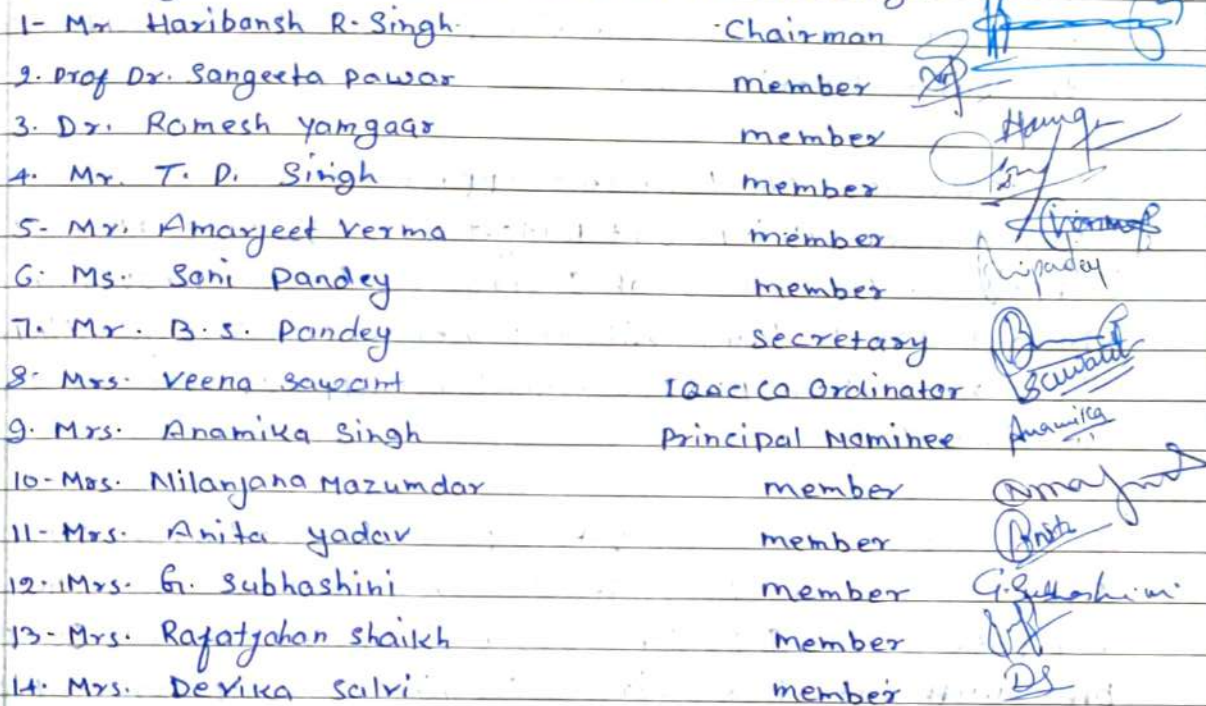 1- Mr Haribansh R. Singh. Chairman
2. Prof Dr. Sangeeta Pawar member
3. Dr. Ramesh Yamgaar member
4. Mr. T. D. Singh member
5- Mr. Amarjeet Verma member
6. Ms. Soni Pandey member
7. Mr. B. S. Pandey Secretary
8- Mrs. Veena Sawant IQAC CO Ordinator
9. Mrs. Anamika Singh Principal Nominee Anamika
10- Mrs. Nilanjana Mazumdar member
11- Mrs. Anita Yadav member Anita
12. Mrs. G. Subhashini member G. Subhashini
13- Mrs. Rafatjahan Shaikh member
14. Mrs. Devika Salvi member DS